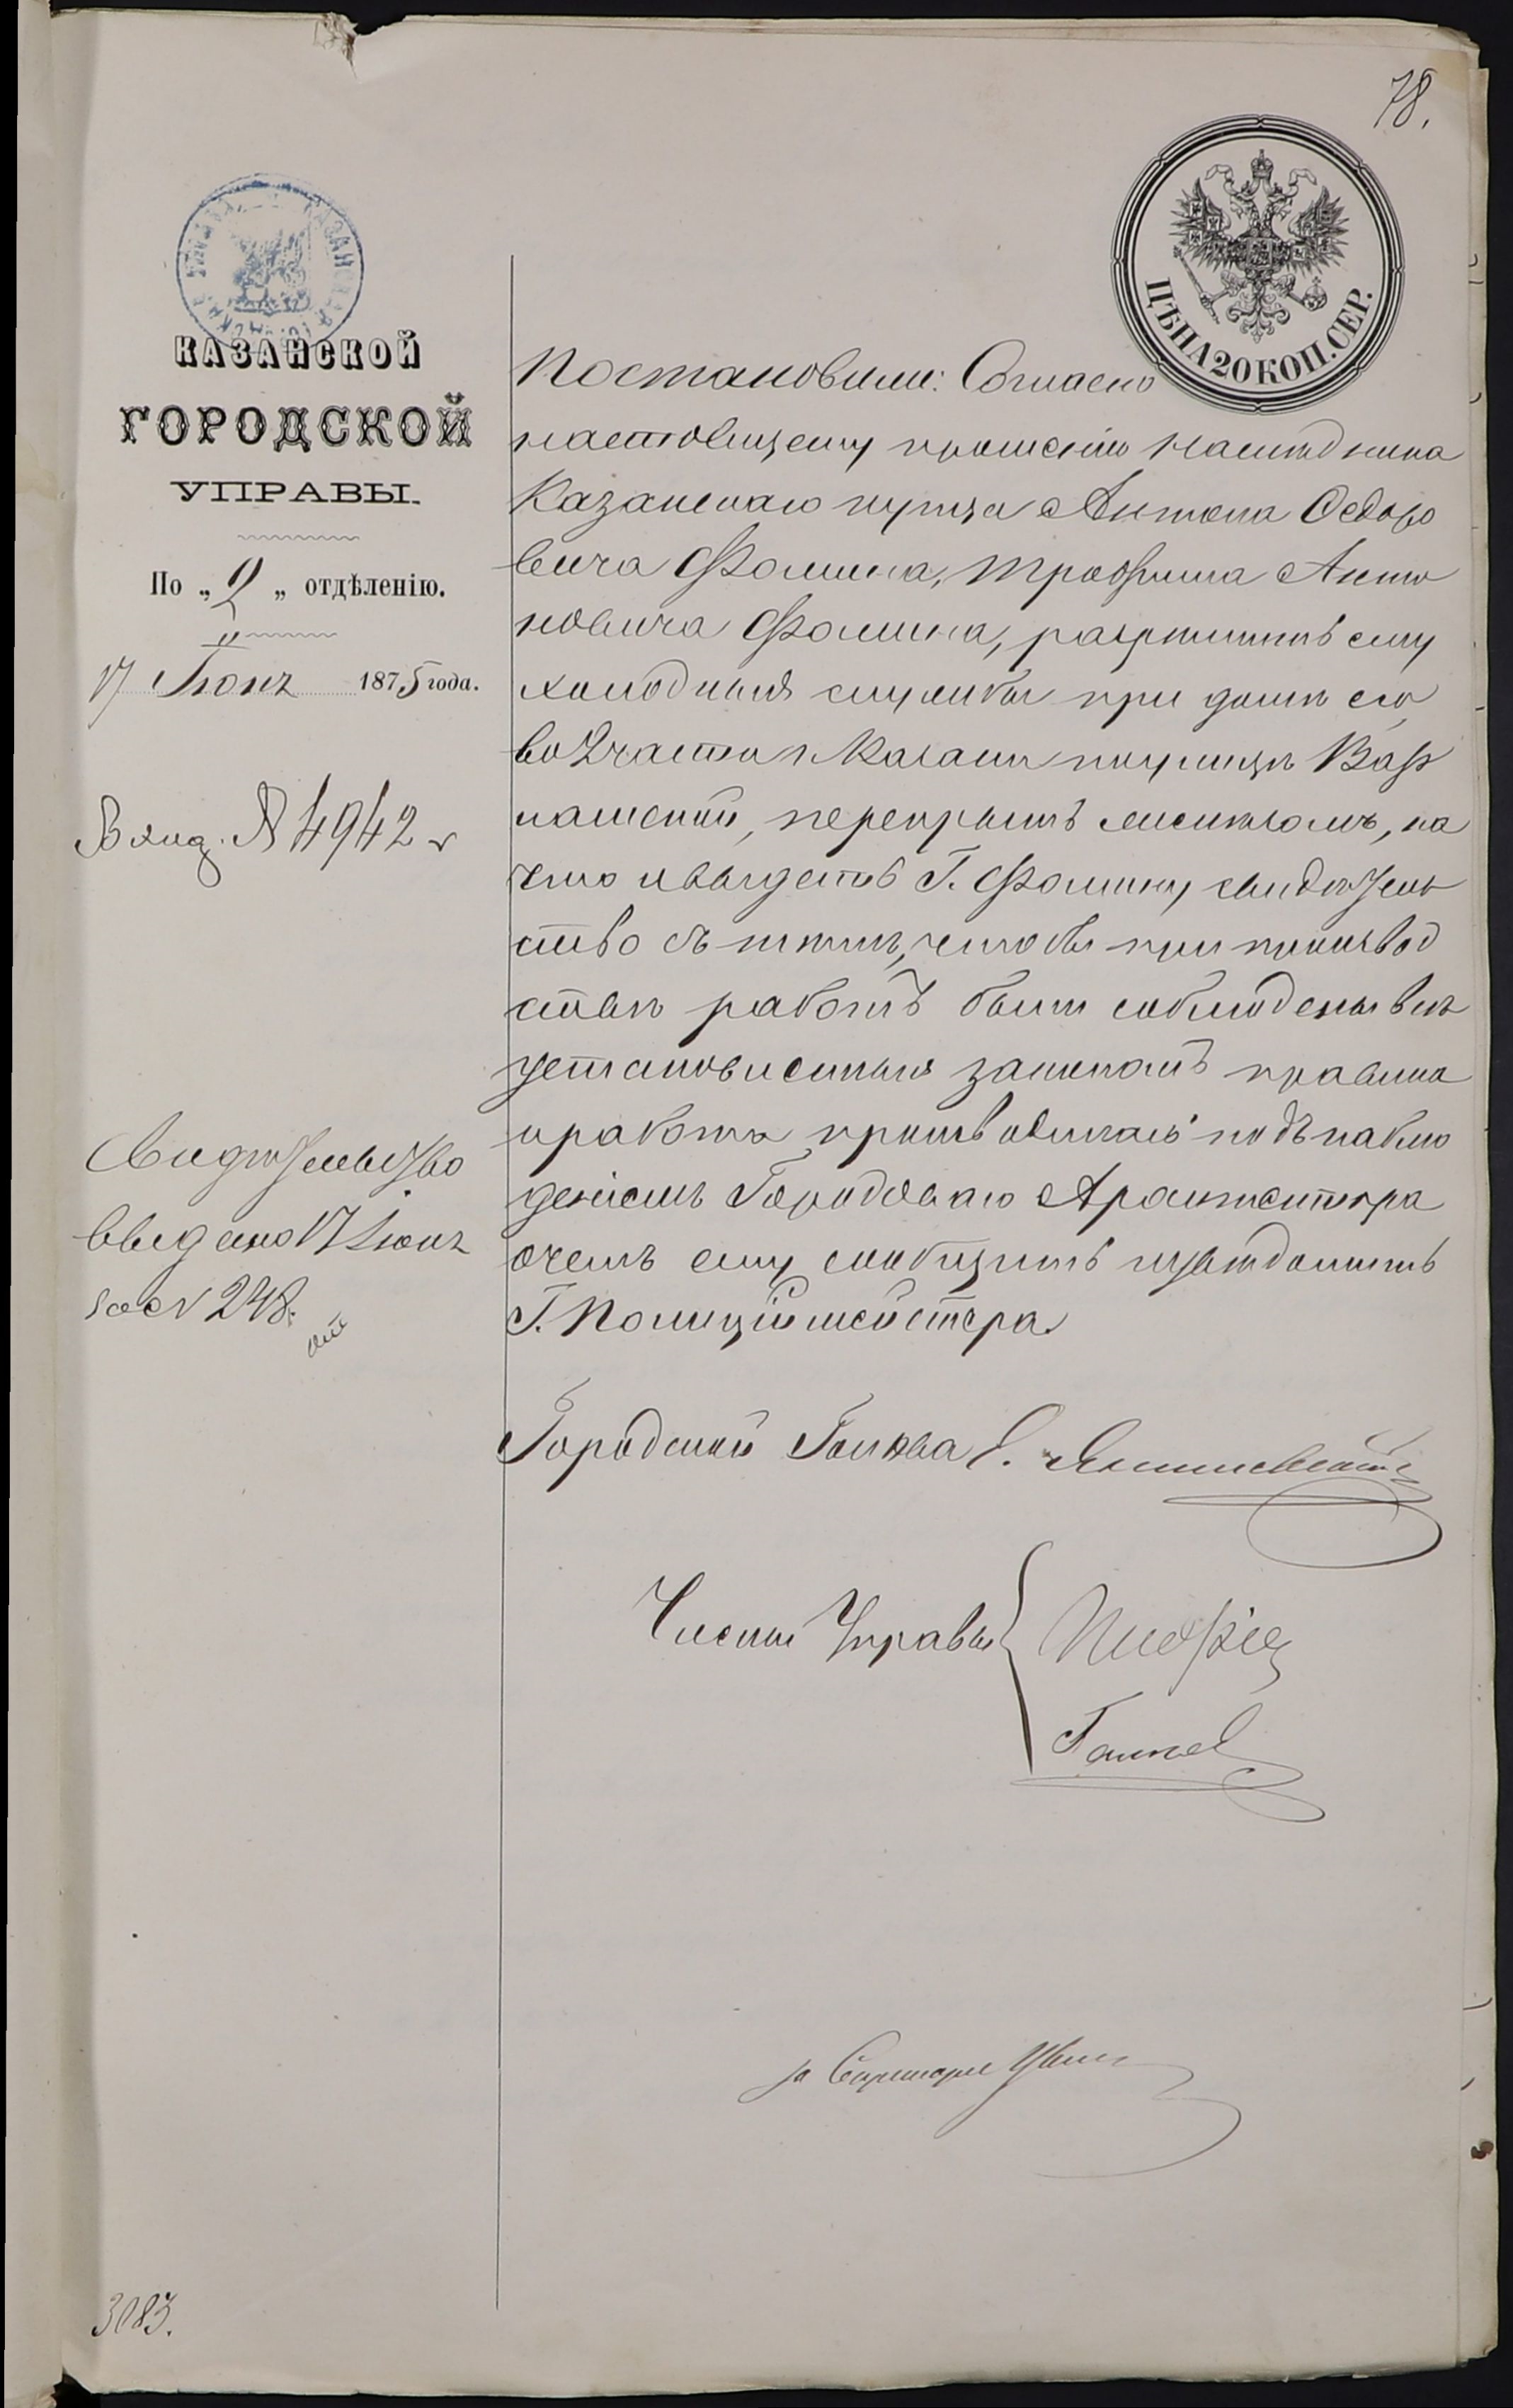 78.
КАЗАНСКОЙ
ГОРОДСКОЙ
УПРАВЫ.
По „2„ отдѣленію.
17 Іюня 1875 года.
Вход. № 4942
Свидѣтельство
выдано 17 Іюня
за № 248.
3083.
ЦѢНА 20 КОП. СЕР.
Постановили: Согласно
настоящему прошенію наслѣдника
Казанскаго купца Антона Ѳедоро
вича Фомина, Трофима Анто
новича Фомина, разрѣшить ему
холодныя службы при домѣ его
во 2 части г. Казани по улицѣ Вар
ламской, перекрыть желѣзомъ, на
что и выдать Г. Фомину свидѣтель
ство съ тѣмъ, чтобы при производ
ствѣ работъ были соблюдены всѣ
установленныя закономъ правила
и работа производилась подъ наблю
деніемъ Городоваго Архитектора
о чемъ ему сообщить и увѣдомить
Г. Полиціймейстера.
Городской Голова Э. Янишевскій
Члены Управы
за Секретаря